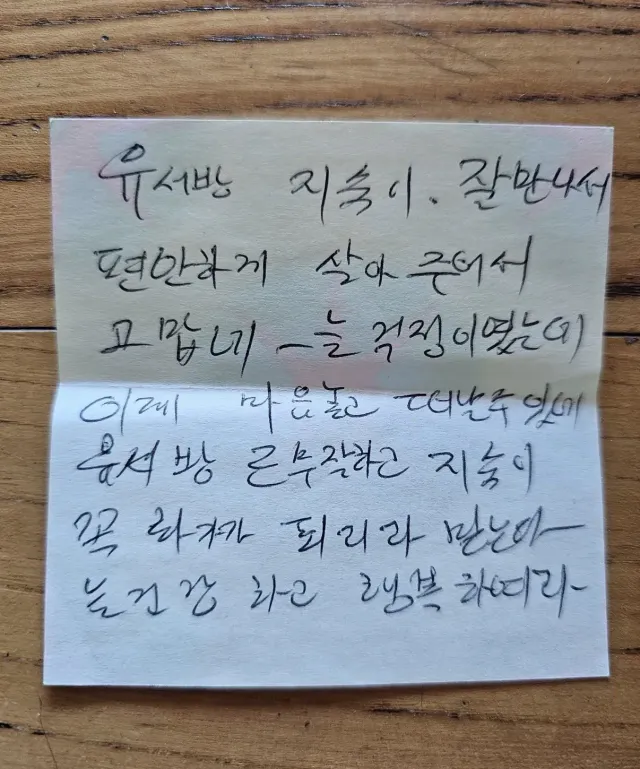 유서방 지숙이. 잘만나서
편안하게 살아 주어서
고맙네 늘 걱정이였는데
이제 마음놓고 떠날수있네
유서방 큰부작하고 지숙이
꼭 화가가 되리라 믿는다
늘건강 하고 행복하여라